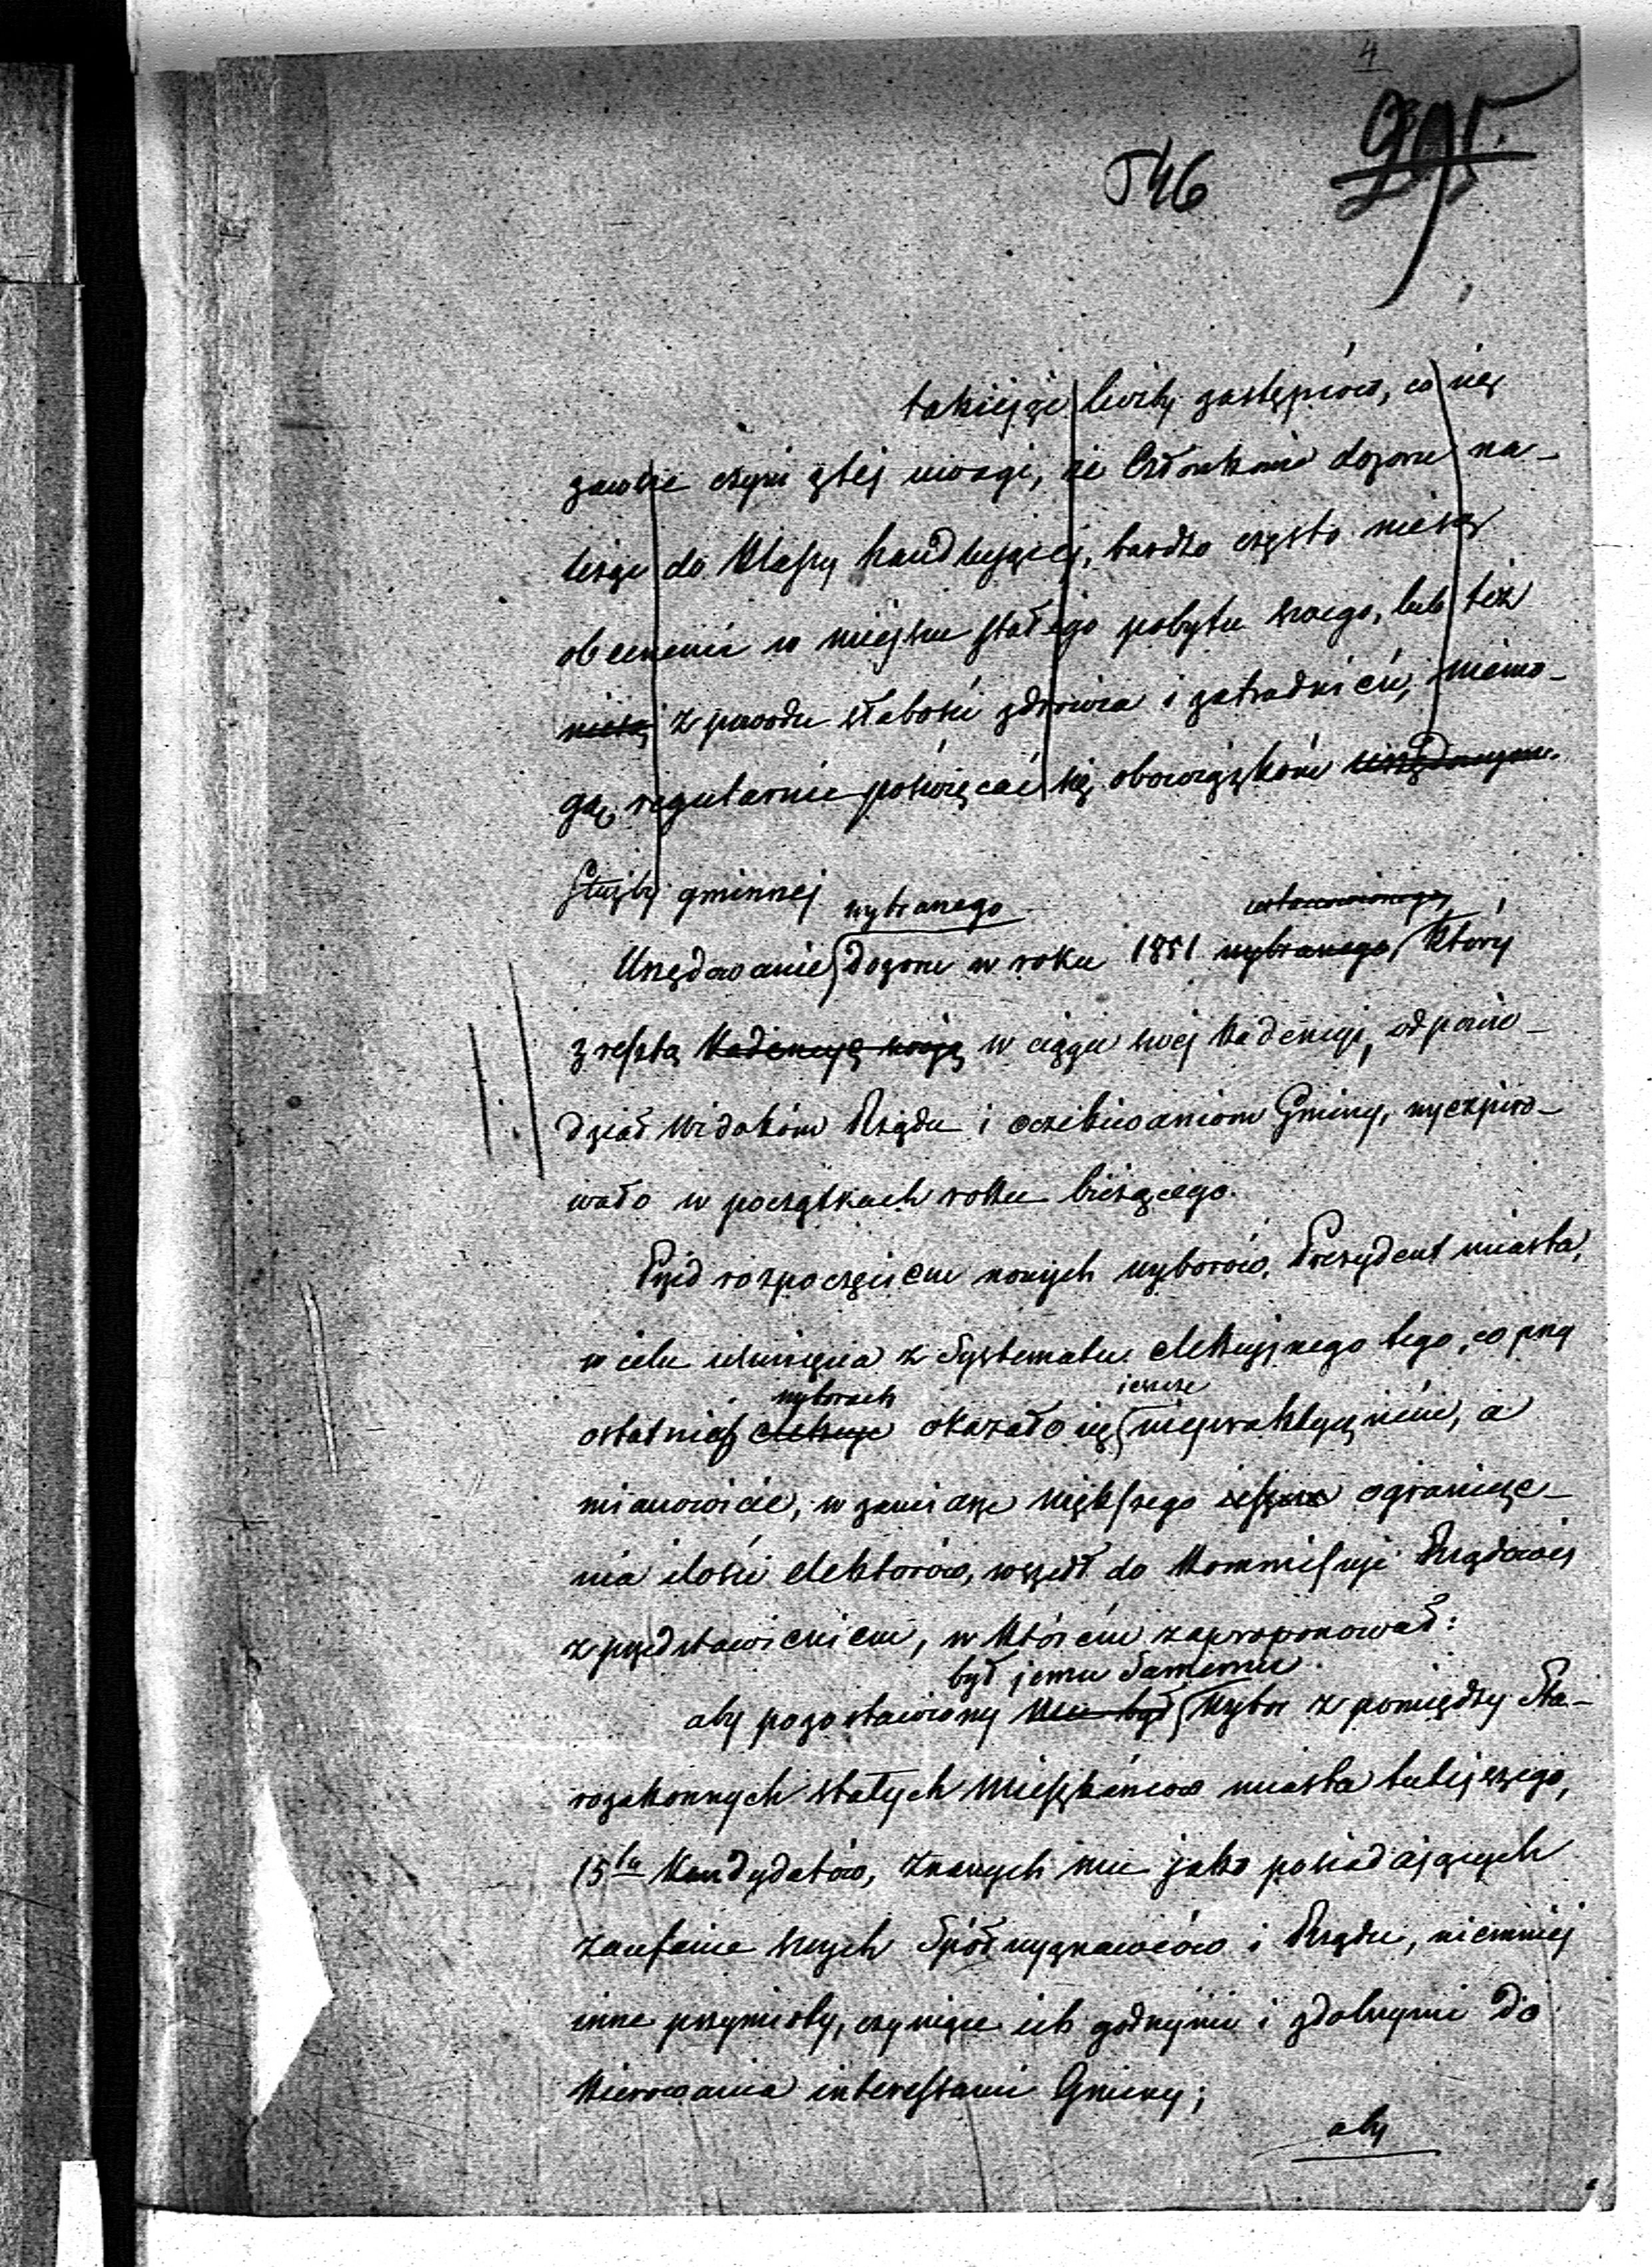 4
546
295.
takiejże liczby zastępców, co się
zawsze czyni z tej uwagi, że Członkowie dozoru na-
leżąc do klassy handlującej, bardzo często nie są
obecnemi w miejscu stałego pobytu swego, lub też
nie są z powodu słabości zdrowia i zatrudnień, niemo-
gą regularnie poświęcać się obowiązkom urzędowym
służby gminnej
wybranego
Urzędowanie dozoru w roku 1851 wybranego, który
zresztą kadencyę swoję w ciągu swej kadencyi, odpowie-
dział widokom Rządu i oczekiwaniom Gminy, wyexpiro-
wało w początkach roku bieżącego.
Przed rozpoczęciem nowych wyborów, Prezydent miasta,
w celu usunięcia z Systematu elekcyjnego tego, co przy
wyborach jeszcze
ostatniej elekcyi okazało się niepraktycznem, a
mianowicie, w zamiarze większego jeszcze ogranicze-
nia ilości elektorów, wszedł do Kommissyi Rządowej
z przedstawieniem, w którém zaproponował:
był jemu Samemu
aby pozostawiony mu był wybór z pomiędzy Sta-
rozakonnych stałych mieszkańców miasta tutejszego,
15tu Kandydatów, znanych mu jako posiadających
zaufanie swych Spółwyznawców i Rządu, niemniej
inne przymioty, czyniące ich godnymi i zdolnymi do
kierowania interessami Gminy;
aby